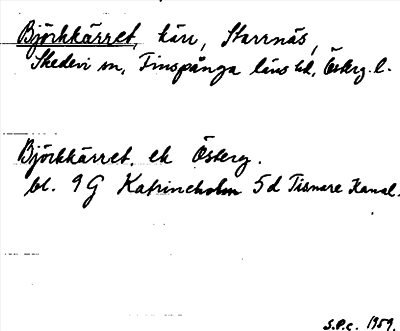 Björkkärret, kärr, Starrnäs,
Skedevi sn, Finspånga läns hd, Österg. l.
Björkkärret. ek Österg.
bl. 9 G Katrineholm 5 d Tisnare Kanal.
S.P.c. 1959.